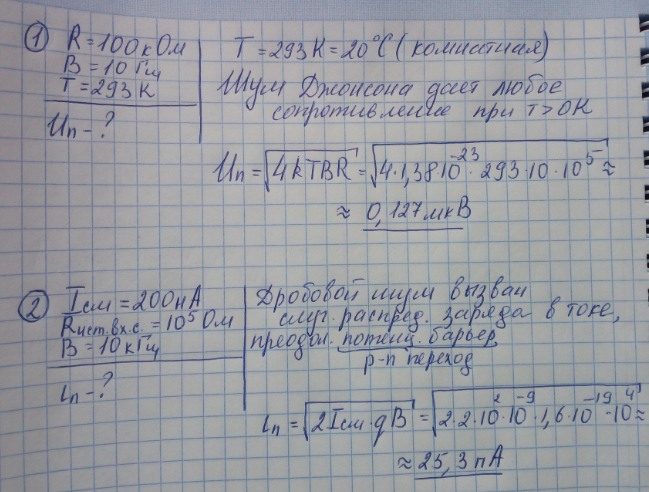 ① R = 100 кОм
B = 10 Гц
T = 293 К
Uп - ?
T = 293 К = 20°С (комнатная)
Шум Джонсона дает любое
сопротивление при T > 0К
Uп = √4kTBR = √4·1,38·10⁻²³·293·10·10⁵ ≈
≈ 0,127 мкВ
② Iсм = 200 нА
Rист.вх.с. = 10⁵ Ом
B = 10 кГц
iп - ?
Дробовой шум вызван
случ. распред. заряда в токе,
преодол. потенц. барьер
p-n переход
iп = √2Iсм·qB = √2·2·10²·10⁻⁹·1,6·10⁻¹⁹·10⁴ ≈
≈ 25,3 пА